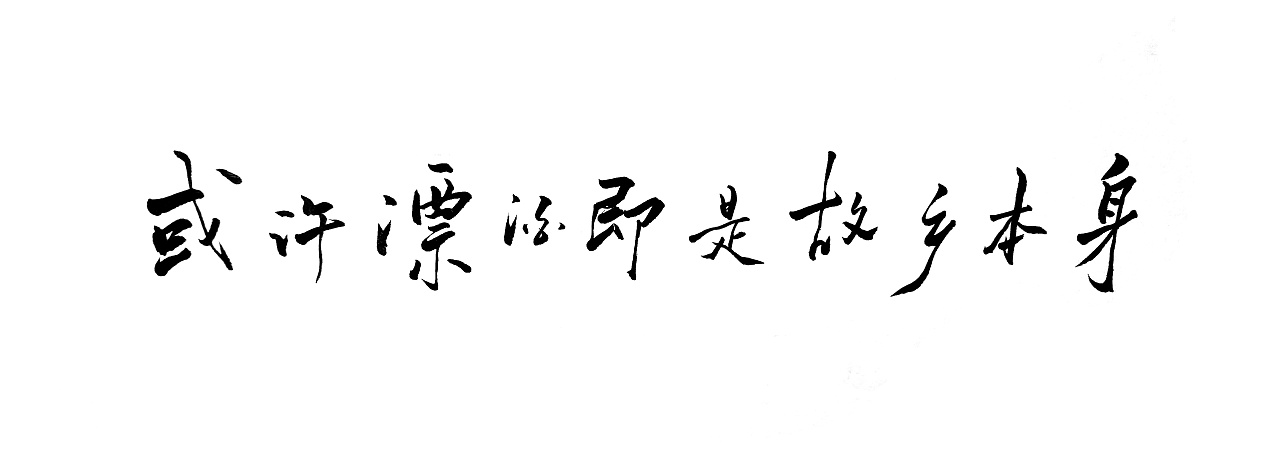 或许漂泊即是故乡本身